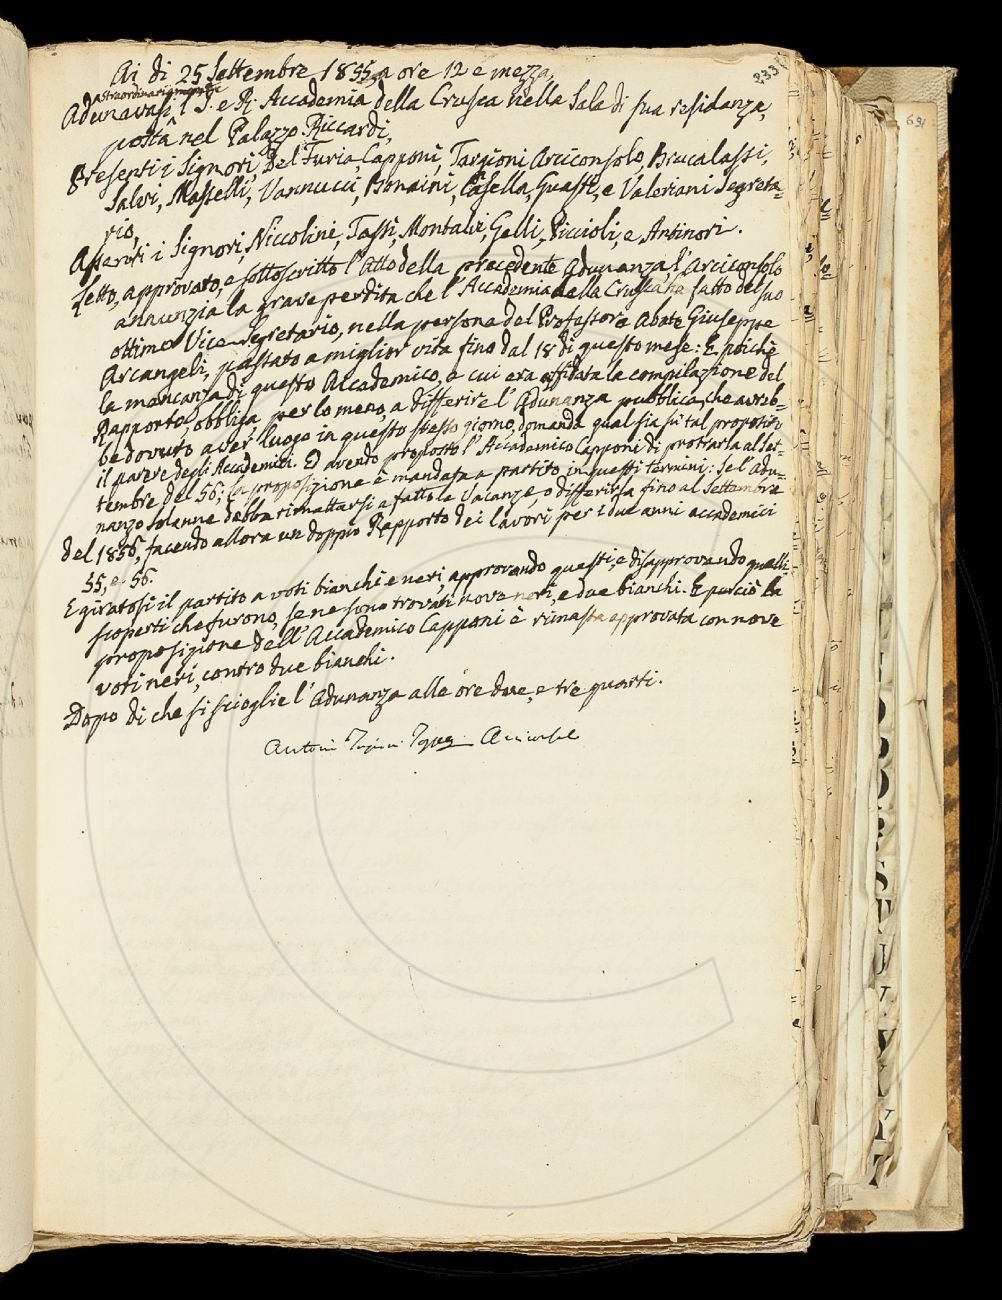 233
691
Ai dì 25 Settembre 1855, a ore 12 e mezza,
straordinariamente
Adunavasi l'I. e R. Accademia della Crusca nella Sala di sua residanza,
posta nel Palazzo Riccardi,
Presenti i Signori, Del Furia, Capponi, Targioni Arciconsolo, Brucalassi,
Salvi, Masselli, Vannucci, Bonaini, Casella, Guasti, e Valeriani Segreta-
rio,
Assenti i Signori, Niccolini, Tassi, Montalvi, Gelli, Puccioli, e Antinori.
Letto, approvato, e sottoscritto l'Atto della precedente Adunanza, l'Arciconsolo
annunzia la grave perdita che l'Accademia della Crusca ha fatto del suo
ottimo Vice Segretario, nella persona del Professore Abate Giuseppe
Arcangeli, passato a miglior vita fino dal 18 di questo mese: E poichè
la mancanza di questo Accademico, a cui era affidata la compilazione del
Rapporto, obbliga per lo meno, a differire l'Adunanza pubblica, che avreb-
be dovuto aver luogo in questo stesso giorno, domanda qual sia su tal proposito
il parere degli Accademici. Ed avendo proposto l'Accademico Capponi di protrarla al Set-
tembre del 56; la proposizione è mandata a partito in questi termini: Se l'Adu-
nanza solenne debba rimettersi a fatto le Vacanze, o differirsa fino al Settembre
del 1856, facendo allora un doppio Rapporto dei lavori per i due anni accademici
55, e 56.
E giratosi il partito a voti bianchi e neri, approvando questi, e disapprovando quelli;
scoperti che furono, se ne sono trovati nove neri, e due bianchi. E perciò la
proposizione dell'Accademico Capponi è rimasta approvata con nove
voti neri, contro due bianchi.
Dopo di che si scioglie l'Adunanza alle ore due, e tre quarti.